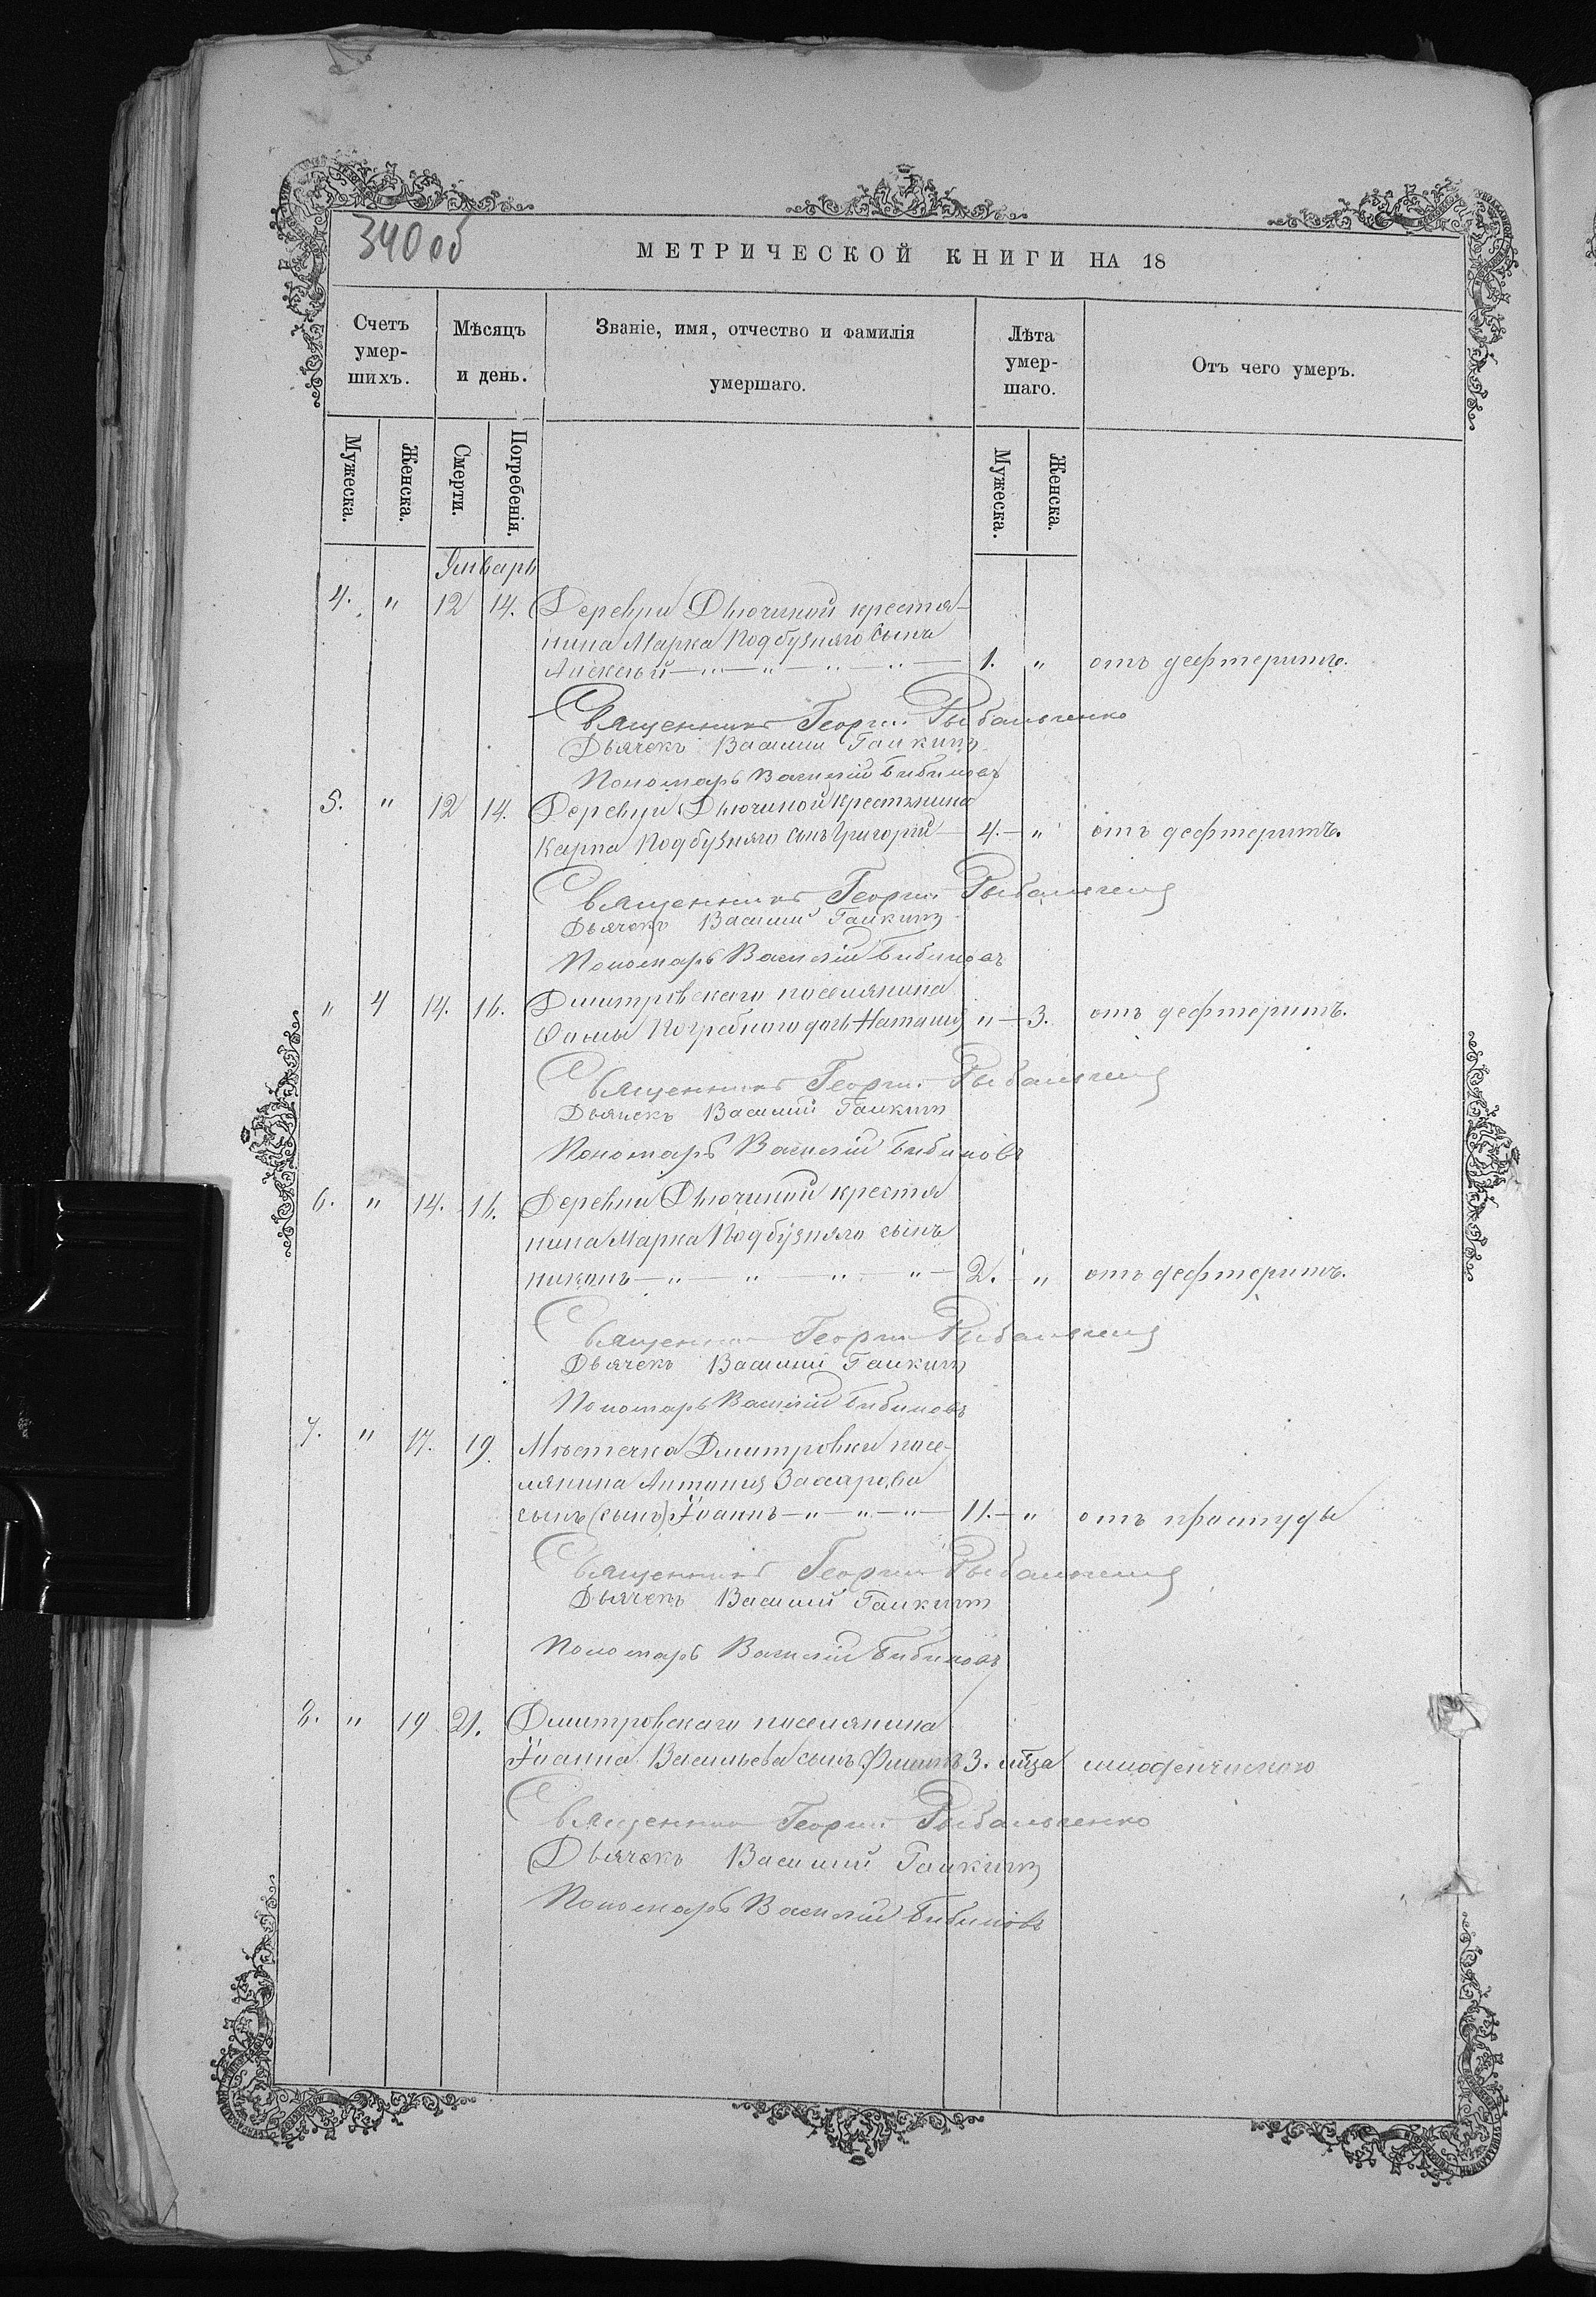 340 об
МЕТРИЧЕСКОЙ КНИГИ НА 18
Счетъ умер-шихъ.
Мѣсяцъ и день.
Званіе, имя, отчество и фамилія умершаго.
Лѣта умер-шаго.
Отъ чего умеръ.
Мужеска.
Женска.
Смерти.
Погребенія.
Мужеска.
Женска.
Январь
4. " 12 14. Деревни крестья-
нина Марка Подбузняго сынъ
Алексѣй — " — " — " — " — 1. " отъ дефтеритъ.
Священникъ Георгій Рыбальченко
Дьячекъ Василій Галкинъ
Пономарь Василій Бибиковъ
5. " 12 14. Деревни крестьянина
Карпа Подбузняго сынъ Григорій — 4. — " отъ дефтеритъ.
Священникъ Георгій Рыбальченко
Дьячекъ Василій Галкинъ
Пономарь Василій Бибиковъ
" 4 14. 16. Дмитровскаго поселянина
Фомы дочь Наталія " — 3. отъ дефтеритъ.
Священникъ Георгій Рыбальченко
Дьячекъ Василій Галкинъ
Пономарь Василій Бибиковъ
6. " 14. 16. Деревни крестья
нина Марка Подбузняго сынъ
Никонъ — " — " — " — " — 2. — " отъ дефтеритъ.
Священникъ Георгій Рыбальченко
Дьячекъ Василій Галкинъ
Пономарь Василій Бибиковъ
7. " 17. 19. Мѣстечка Дмитровки посе-
лянина Антонія Захарова
сынъ (сынъ) Іоаннъ — " — " — " — 11. — " отъ простуды
Священникъ Георгій Рыбальченко
Дьячекъ Василій Галкинъ
Пономарь Василій Бибиковъ
8. " 19 21. Дмитровскаго поселянина
Іоанна Васильева сынъ 3. м҃ца младенческою
Священникъ Георгій Рыбальченко
Дьячекъ Василій Галкинъ
Пономарь Василій Бибиковъ